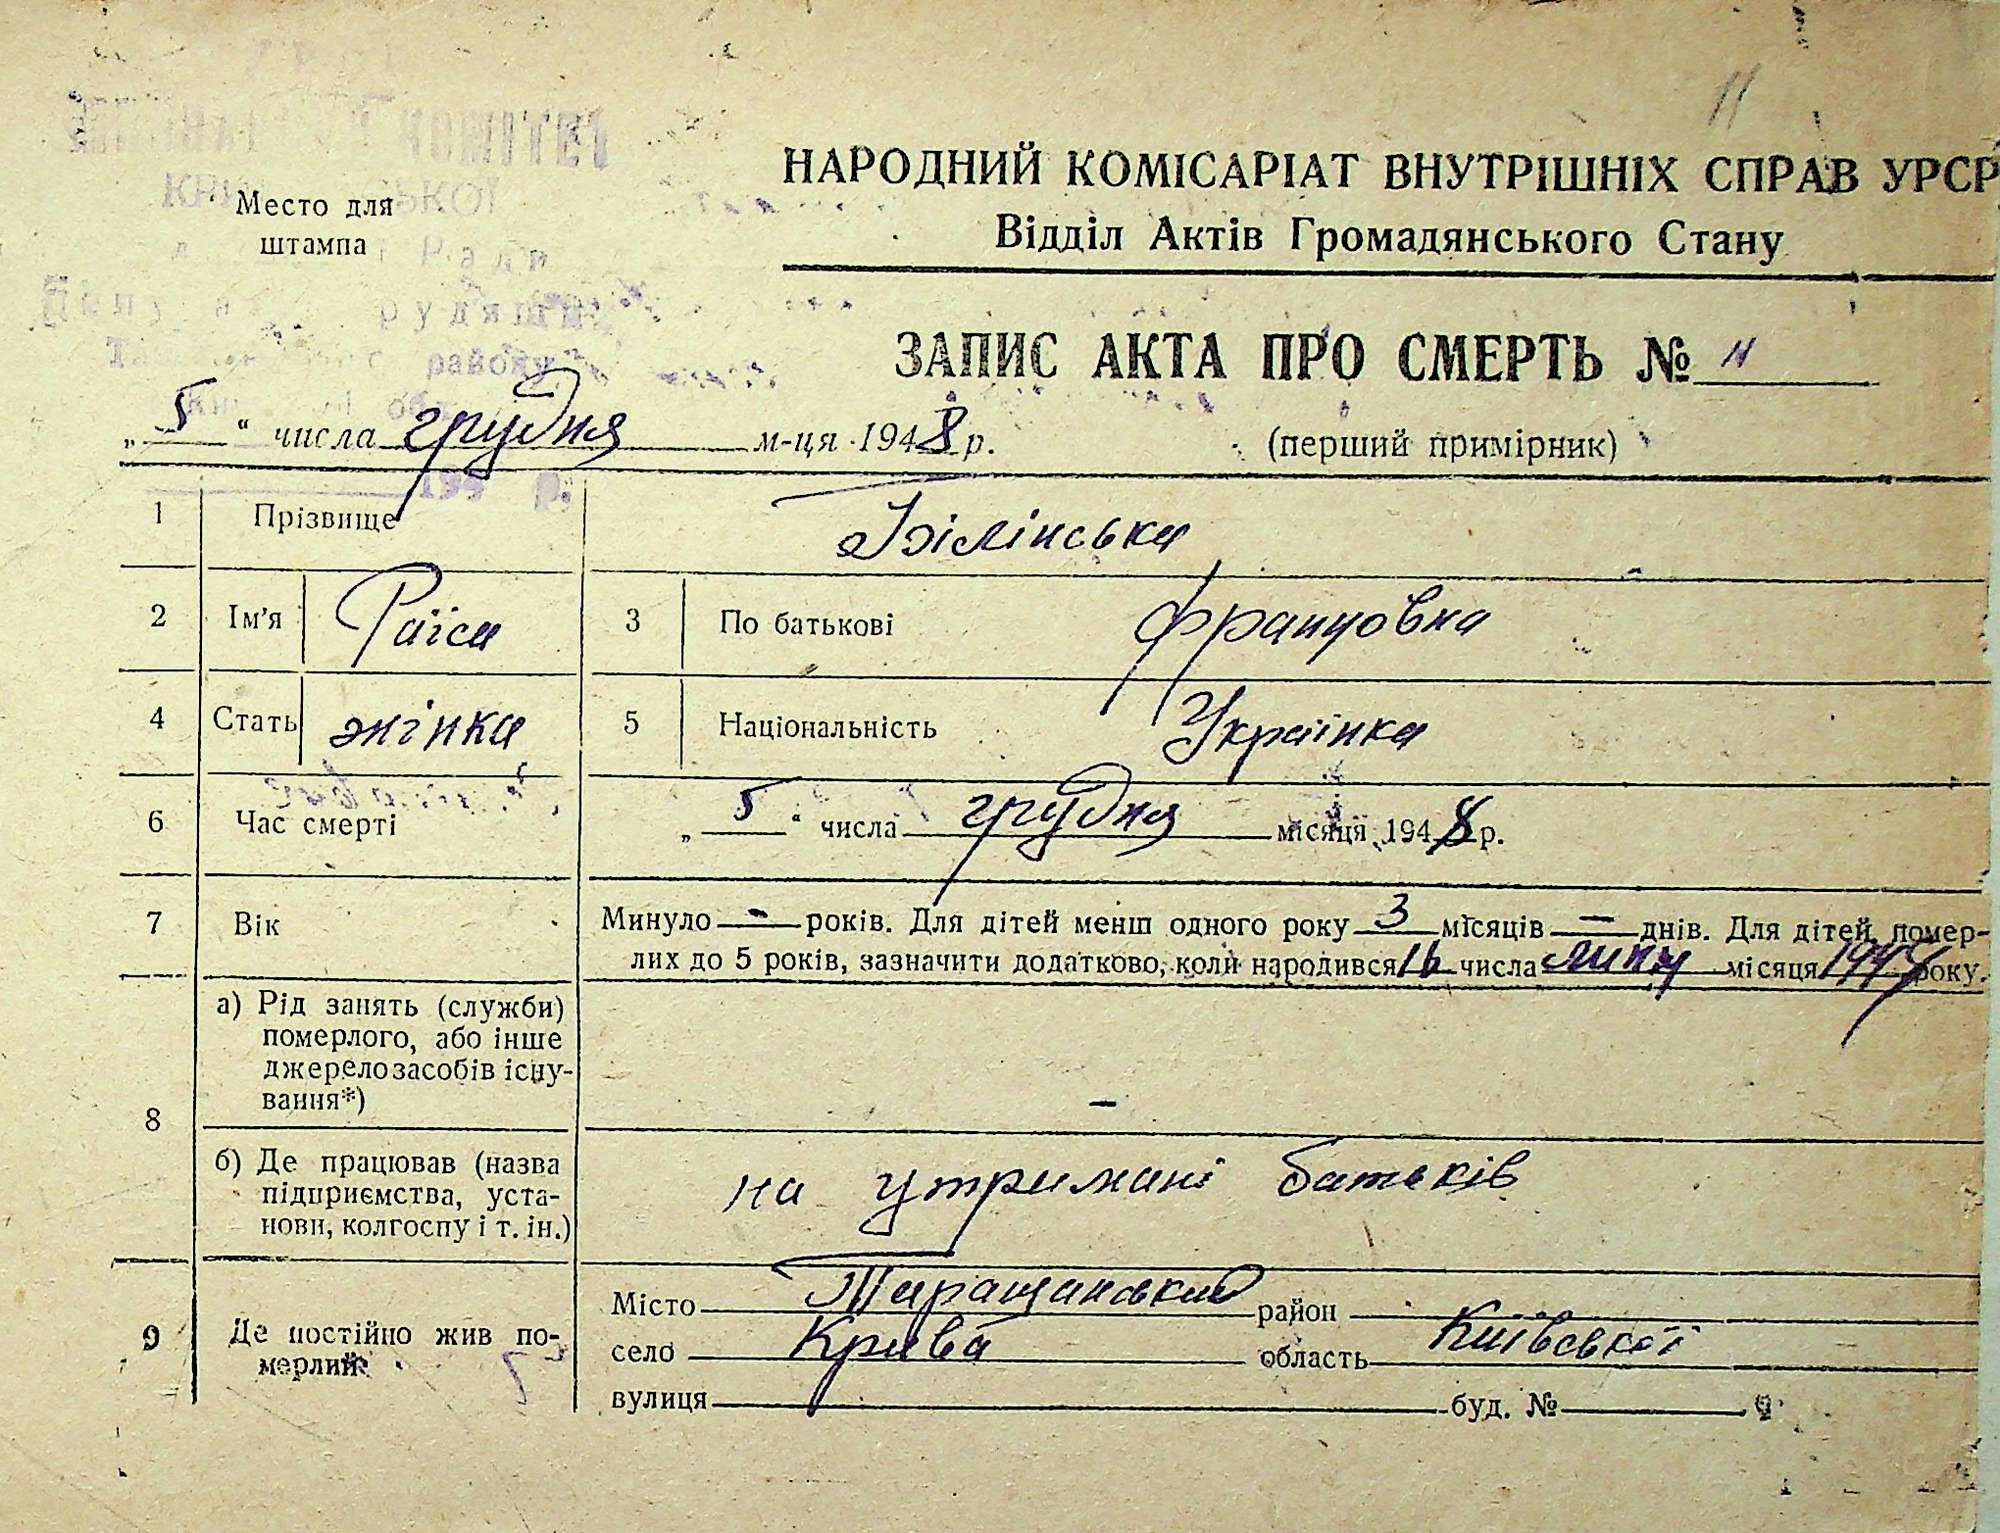 11
КОМІТЕТ
НАРОДНИЙ КОМІСАРІАТ ВНУТРІШНІХ СПРАВ УРСР
Место для
штампа
Відділ Актів Громадянського Стану
Ради
району
ЗАПИС АКТА ПРО СМЕРТЬ № 11
„ 5 “ числа грудня м-ця 1948 р.
(перший примірник)
1 Прізвище Білінська
2 Ім'я Раїса 3 По батькові Францовна
4 Стать жінка 5 Національність Українка
6 Час смерті „ 5 “ числа грудня місяця 1948 р.
7 Вік Минуло - років. Для дітей менш одного року 3 місяців - днів. Для дітей, помер-
лих до 5 років, зазначити додатково, коли народився 16 числа липня місяця року.
8 а) Рід занять (служби)
померлого, або інше
джерело засобів існу-
вання*) -
б) Де працював (назва
підприємства, уста-
нови, колгоспу і т. ін.) на утримані батьків
9 Де постійно жив по-
мерлий
Місто Таращанський район
село Крива область Київської
вулиця буд. №